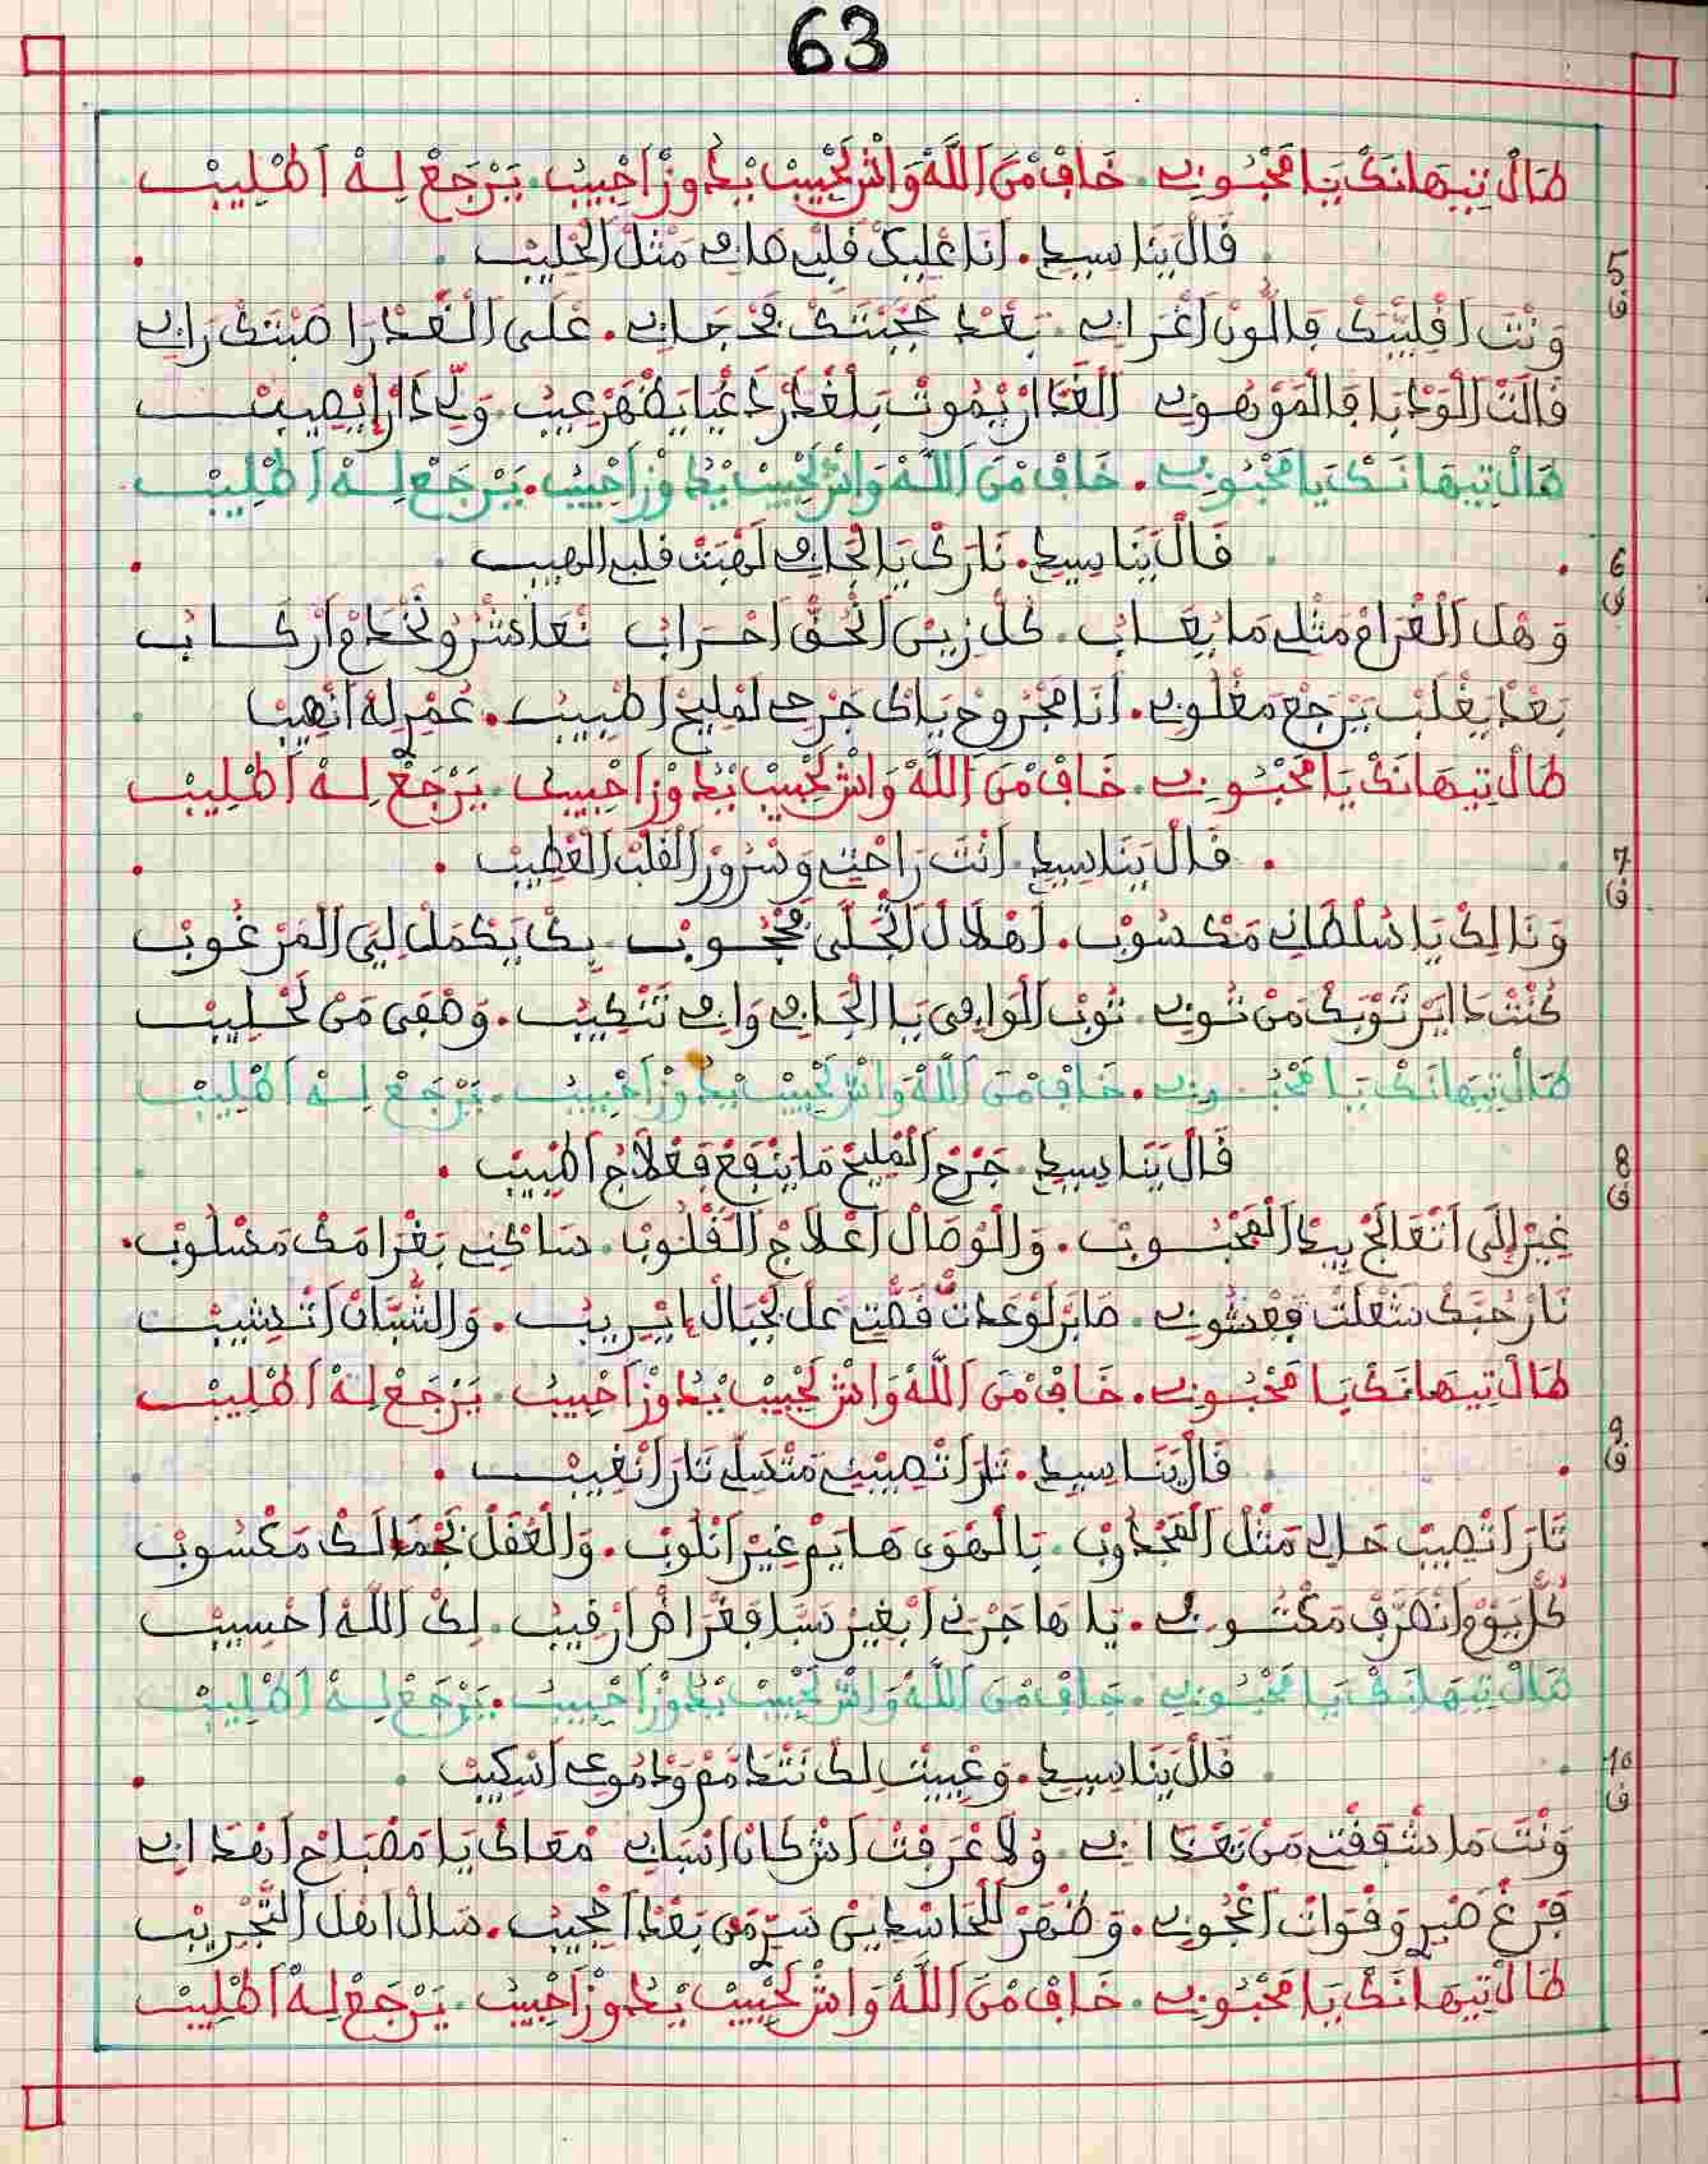 63
طَالْ تِيهَانَكْ يَا مَحْبُوبِي. خَافْ مْنَ اَللَّهْ وَاشْ لَحْبِيبْ يْدُوزْ اَحْبِيبُ. يَرْجَعْ لِهْ اَطْلِيبْ
5 ق
قَالْ يَنَا سِيدِي. أَنَا عْلِيكْ قَلْبِي صَافِي مَثْلْ اَلْحْلِيبْ
وَنْتَ اَقْلِيبَكْ فَاللُّونْ اَغْرَابِي. بَعْدْ حَجْبَتَكْ فَحْجَابِي. عْلَى اَلْغَدْرَا صَبْتَكْ رَابِي
قَالَتْ اَلْوَدْبَا فَالْمَوْهُوبِي اَلْغَدَّارْ يْمُوتْ بَلْغْدَرْ دَغْيَا يَظْهَرْ عِيبُ. وَلِّي دَارْ اَيْصِيبْ
طَالْ تِيهَانَكْ يَا مَحْبُوبِي. خَافْ مْنَ اَللَّهْ وَاشْ لَحْبِيبْ يْدُوزْ اَحْبِيبُ. يَرْجَعْ لِهْ اَطْلِيبْ
6 ق
قَالْ يَنَا سِيدِي. نَارَكْ يَا الْجَافِي لَهْبَتْ قَلْبِي الْهِيبْ
وَهْلْ اَلْغْرَامْ مَثْلِي مَا يْعَابُ. كُلْ زِينْ اَلْحُقّْ اَحْرَابُ
بَعْدْ يَغْلَبْ يَرْجَعْ مَغْلُوبِي. أَنَا مَجْرُوحْ يَاكْ جَرْحِي لَمْلِيحْ اَطْبِيبُ. عُمْرِ لَهْ اَنْصِيبْ
طَالْ تِيهَانَكْ يَا مَحْبُوبِي. خَافْ مْنَ اَللَّهْ وَاشْ لَحْبِيبْ يْدُوزْ اَحْبِيبُ. يَرْجَعْ لِهْ اَطْلِيبْ
7 ق
قَالْ يَنَا سِيدِي. اَنْتَ رَاحْتِي وَسْرُورْ اَلْقَلْبْ اَلْعْطِيبْ
وَنَا لِكْ يَا سُلْطَانِي مَكْسُوبْ. لَهْلَالْ اَلْجْلَى مَحْجُوبْ بِكْ يَكْمَلْ لِيَ اَلْمَرْغُوبْ
كُنْتْ دَايَرْ تَوْبَكْ مَنْ تُوبِي. تُوبْ اَلْوَافِي يَا الْجَافِي وَافِي تَنْكِيبُ. وَصْفَى مَنْ لَحْلِيبْ
طَالْ تِيهَانَكْ يَا مَحْبُوبِي. خَافْ مْنَ اَللَّهْ وَاشْ لَحْبِيبْ يْدُوزْ اَحْبِيبُ. يَرْجَعْ لِهْ اَطْلِيبْ
8 ق
قَالْ يَنَا سِيدِي. جَرْحْ اَلْمْلِيحْ مَا يَنْفَعْ فَعْلَاجُ اَطْبِيبْ.
غِيرْ إِلَى اَتْعَالَجْ بِيدْ اَلْمَحْبُوبْ. وَالْوْصَالْ اَعْلَاجْ اَلْقْلُوبْ. سَاكْنِي بَغْرَامَكْ مَسْلُوبْ.
نَارْ حُبَّكْ شَعْلَتْ فَعْشُوبِي. صَابَرْ لَوْعَدَتْ قَصّْتِي عَلْ لَجْبَالْ اِيْرِيبُ. وَالشُّبَّانْ اَتْشِيبْ
طَالْ تِيهَانَكْ يَا مَحْبُوبِي. خَافْ مْنَ اَللَّهْ وَاشْ لَحْبِيبْ يْدُوزْ اَحْبِيبُ. يَرْجَعْ لِهْ اَطْلِيبْ
9 ق
قَالْ يَنَا سِيدِي. تَارَ اَتْصِيبْنِي مَتْسَلِّي تَارَ اَنْغِيبْ.
تَارَ اَتْصِيبْ حَالِي مَثْلْ اَلْمَجْدُوبْ. بَالْهْوَى هَايَمْ غِيرْ اَنْلُوبْ. وَالْعْقَلْ بَجْمَالَكْ مَكْسُوبْ
كُلّْ يَوْمْ اَنْصَرَّفْ مَكْتُوبِي. يَا هَاجَرْنِي اَبْغِيرْ سَبَّا فَغْرَاضْ اَرْقِيبُ. لِكْ اَللَّهْ اَحْسِيبْ
طَالْ تِيهَانَكْ يَا مَحْبُوبِي. خَافْ مْنَ اَللَّهْ وَاشْ لَحْبِيبْ يْدُوزْ اَحْبِيبُ. يَرْجَعْ لِهْ اَطْلِيبْ
10 ق
قَالْ يَنَا سِيدِي. وَعْيِيتْ لِكْ نَتْدَمَّمْ وَدْمُوعِي اَسْكِيبْ
وَنْتَ مَا شْفَقْتِي مَنْ تَعْدَابِي. وُلَا عْرَفْتْ اَشْ كَانْ اَسْبَابِي مْعَاكْ يَا مَصْبَاحْ اَهْدَابِي
فْرَغْ صَبْرِ وَقْوَاتْ اَعْجُوبِي. وَظْهَرْ لَلْحَاسْدِينْ سَرِّ مَنْ بَعْدْ اَحْجِيبُ. سَالْ اَهْلْ اَلتَّجْرِيبْ
طَالْ تِيهَانَكْ يَا مَحْبُوبِي. خَافْ مْنَ اَللَّهْ وَاشْ لَحْبِيبْ يْدُوزْ اَحْبِيبُ. يَرْجَعْ لِهْ اَطْلِيبْ